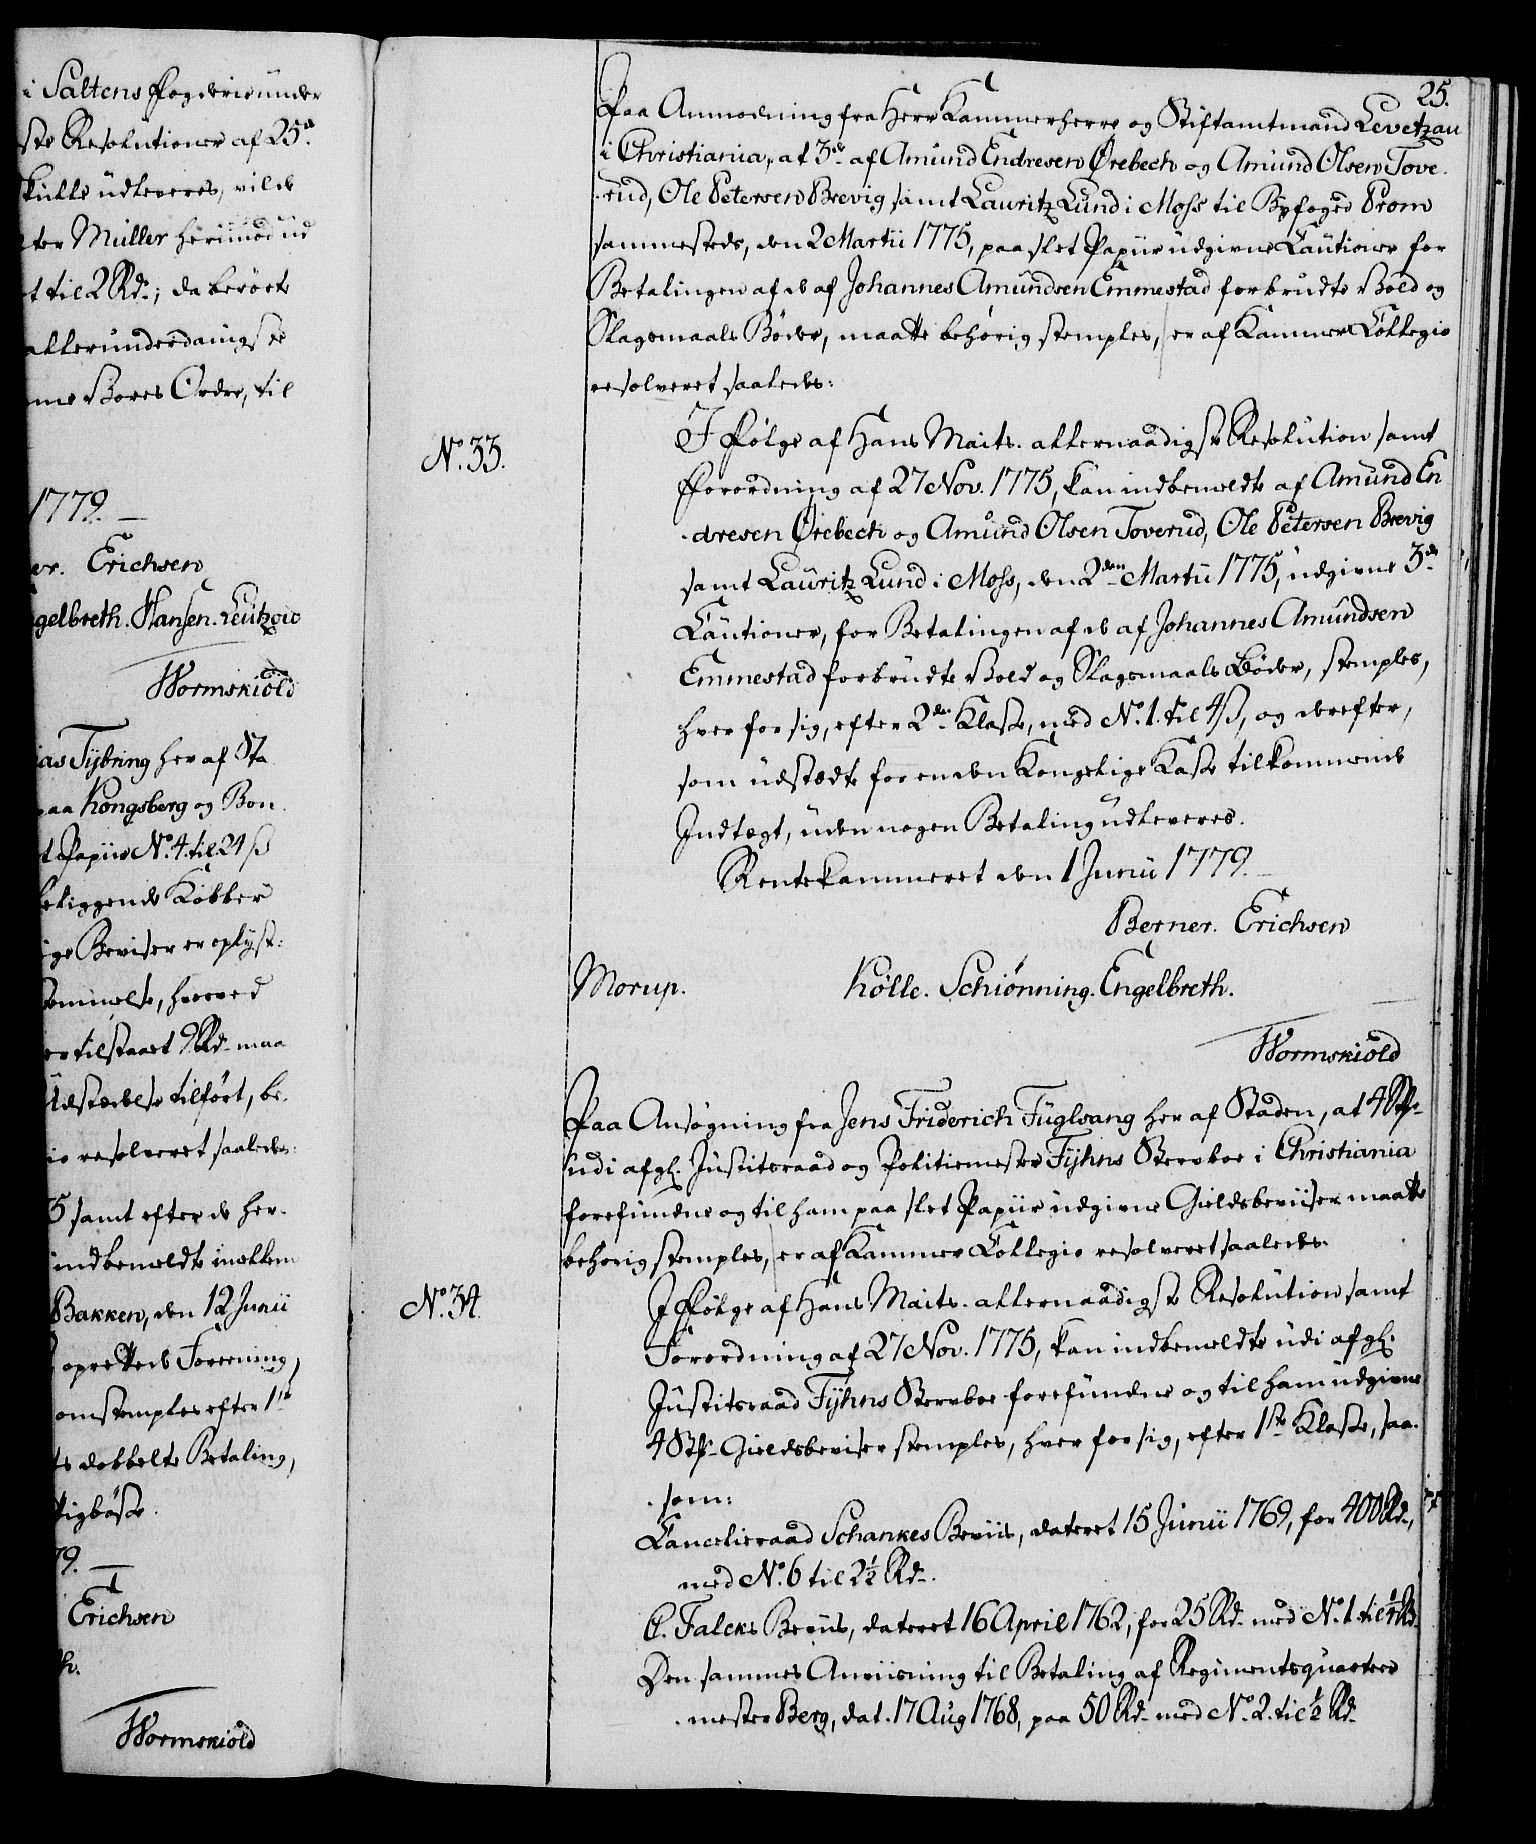 i Saltens Fogderie under
ste Resolutioner af 25de
skulle udleveres, vilde
ter Müller heriimod ud
t til 2 Rd.; da berørte
allerunderdanigste
me Vores Ordre, til
1779. —
er. Erichsen
gelbreth. Hansen. Leützow
Wormskiold
ias Tÿbring her af Sta
paa Kongsberg og Bon
t Papiir No. 4. til 24 ß
beliggende Kobber
ige Beviser er oplyst:
temmelse, hvorved
er tilstaaet 9 Rd. maa
Udstædelse tilført, be-
io resolveret saaledes:
75 samt efter de her-
indbemeldte imellem
Bakken, den 12 Junii
oprettede Foreening,
omstemples efter 1ste
ts dobbelte Betaling,
ttigbøsse.
79. —
Erichsen
h.
Wormskiold
25.
Paa Anmodning fra Herr Kammerherre og Stiftamtmand Levetzau
i Christiania, at 3de af Amund Endresen Ørebech og Amund Olsen Tove-
rud, Ole Petersen Brevig samt Lauritz Lund i Moss til Byfoged Prom
sammesteds, den 2 Martii 1775, paa slet Papiir udgivne Cautioner for
Betalingen af de af Johannes Amundsen Emmestad forbrudte Vold og
Slagsmaals Bøder, maatte behørig stemples, er af Kammer Collegio
resolveret saaledes:
No. 33.
I Følge af Hans Maits. allernaadigste Resolution samt
Forordning af 27 Nov. 1775, kan indbemeldte af Amund En
dresen Ørebech og Amund Olsen Toverud, Ole Petersen Brevig
samt Lauritz Lund i Moss, den 2den Martii 1775, udgivne 3de
Cautioner, for Betalingen af de af Johannes Amundsen
Emmestad forbrudte Vold og Slagsmaals Bøder, stemples,
hver for sig, efter 2den Klasse, med No. 1. til 4 ß, og derefter,
som udstædte for en den Kongelige Kasse tilkommende
Indtægt, uden nogen Betaling udleveres.
Rentekammeret den 1 Junii 1779. —
Berner. Erichsen
Morup. Kölle. Schiønning. Engelbreth.
Wormskiold
Paa Ansøgning fra Jens Friderich Fuglsang her af Staden, at 4 Stk.
udi afgl. Justitsraad og Politiemester Fÿhns Sterboe i Christiania
forefundne og til ham paa slet Papiir udgivne Gieldsbeviiser maatte
behørig stemples, er af Kammer Collegio resolveret saaledes.
No. 34.
I Følge af Hans Maits. allernaadigste Resolution samt
Forordning af 27 Nov. 1775, kan indbemeldte udi afgl.
Justitsraad Fÿhns Sterboe forefundne og til ham udgivne
4 Stk. Gieldsbeviser stemples, hver for sig, efter 1ste Klasse, saa-
som:
Cancelieraad Schankes Beviis, dateret 15 Junii 1769, for 400 Rd.,
med No. 6 til 2½ Rd.
C. Falcks Beviis, dateret 16 April 1762, for 25 Rd. med No. 1. til ¼ Rd.
Den sammes Anviisning til Betaling af Regimentsquarteer
mester Berg, dat. 17 Aug 1768, paa 50 Rd. med No. 2. til ½ Rd.